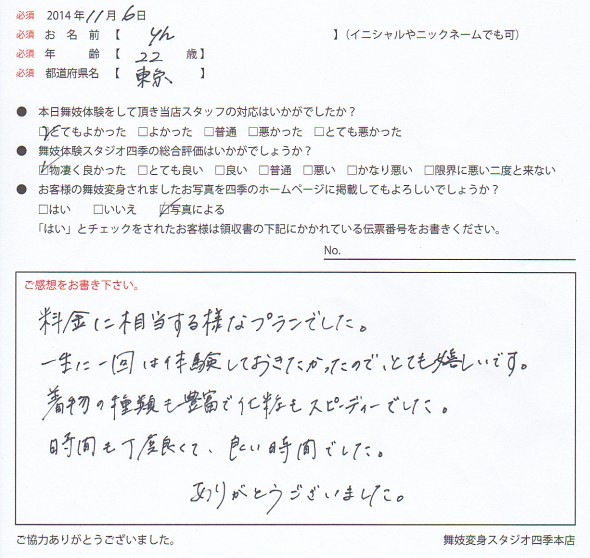 必須 2014年11月6日
必須 お名前【 yh 】(イニシャルやニックネームでも可)
必須 年齢【 22 歳】
必須 都道府県名【 東京 】
● 本日舞妓体験をして頂き当店スタッフの対応はいかがでしたか?
☑とてもよかった □よかった □普通 □悪かった □とても悪かった
● 舞妓体験スタジオ四季の総合評価はいかがでしょうか?
☑物凄く良かった □とても良い □良い □普通 □悪い □かなり悪い □限界に悪い二度と来ない
● お客様の舞妓変身されましたお写真を四季のホームページに掲載してもよろしいでしょうか?
□はい □いいえ ☑写真による
「はい」とチェックをされたお客様は領収書の下記にかかれている伝票番号をお書きください。
No.
ご感想をお書き下さい。
料金に相当する様なプランでした。
一生に一回は体験しておきたかったので、とても嬉しいです。
着物の種類も豊富で化粧もスピーディーでした。
時間も丁度良くて、良い時間でした。
ありがとうございました。
ご協力ありがとうございました。 舞妓変身スタジオ四季本店